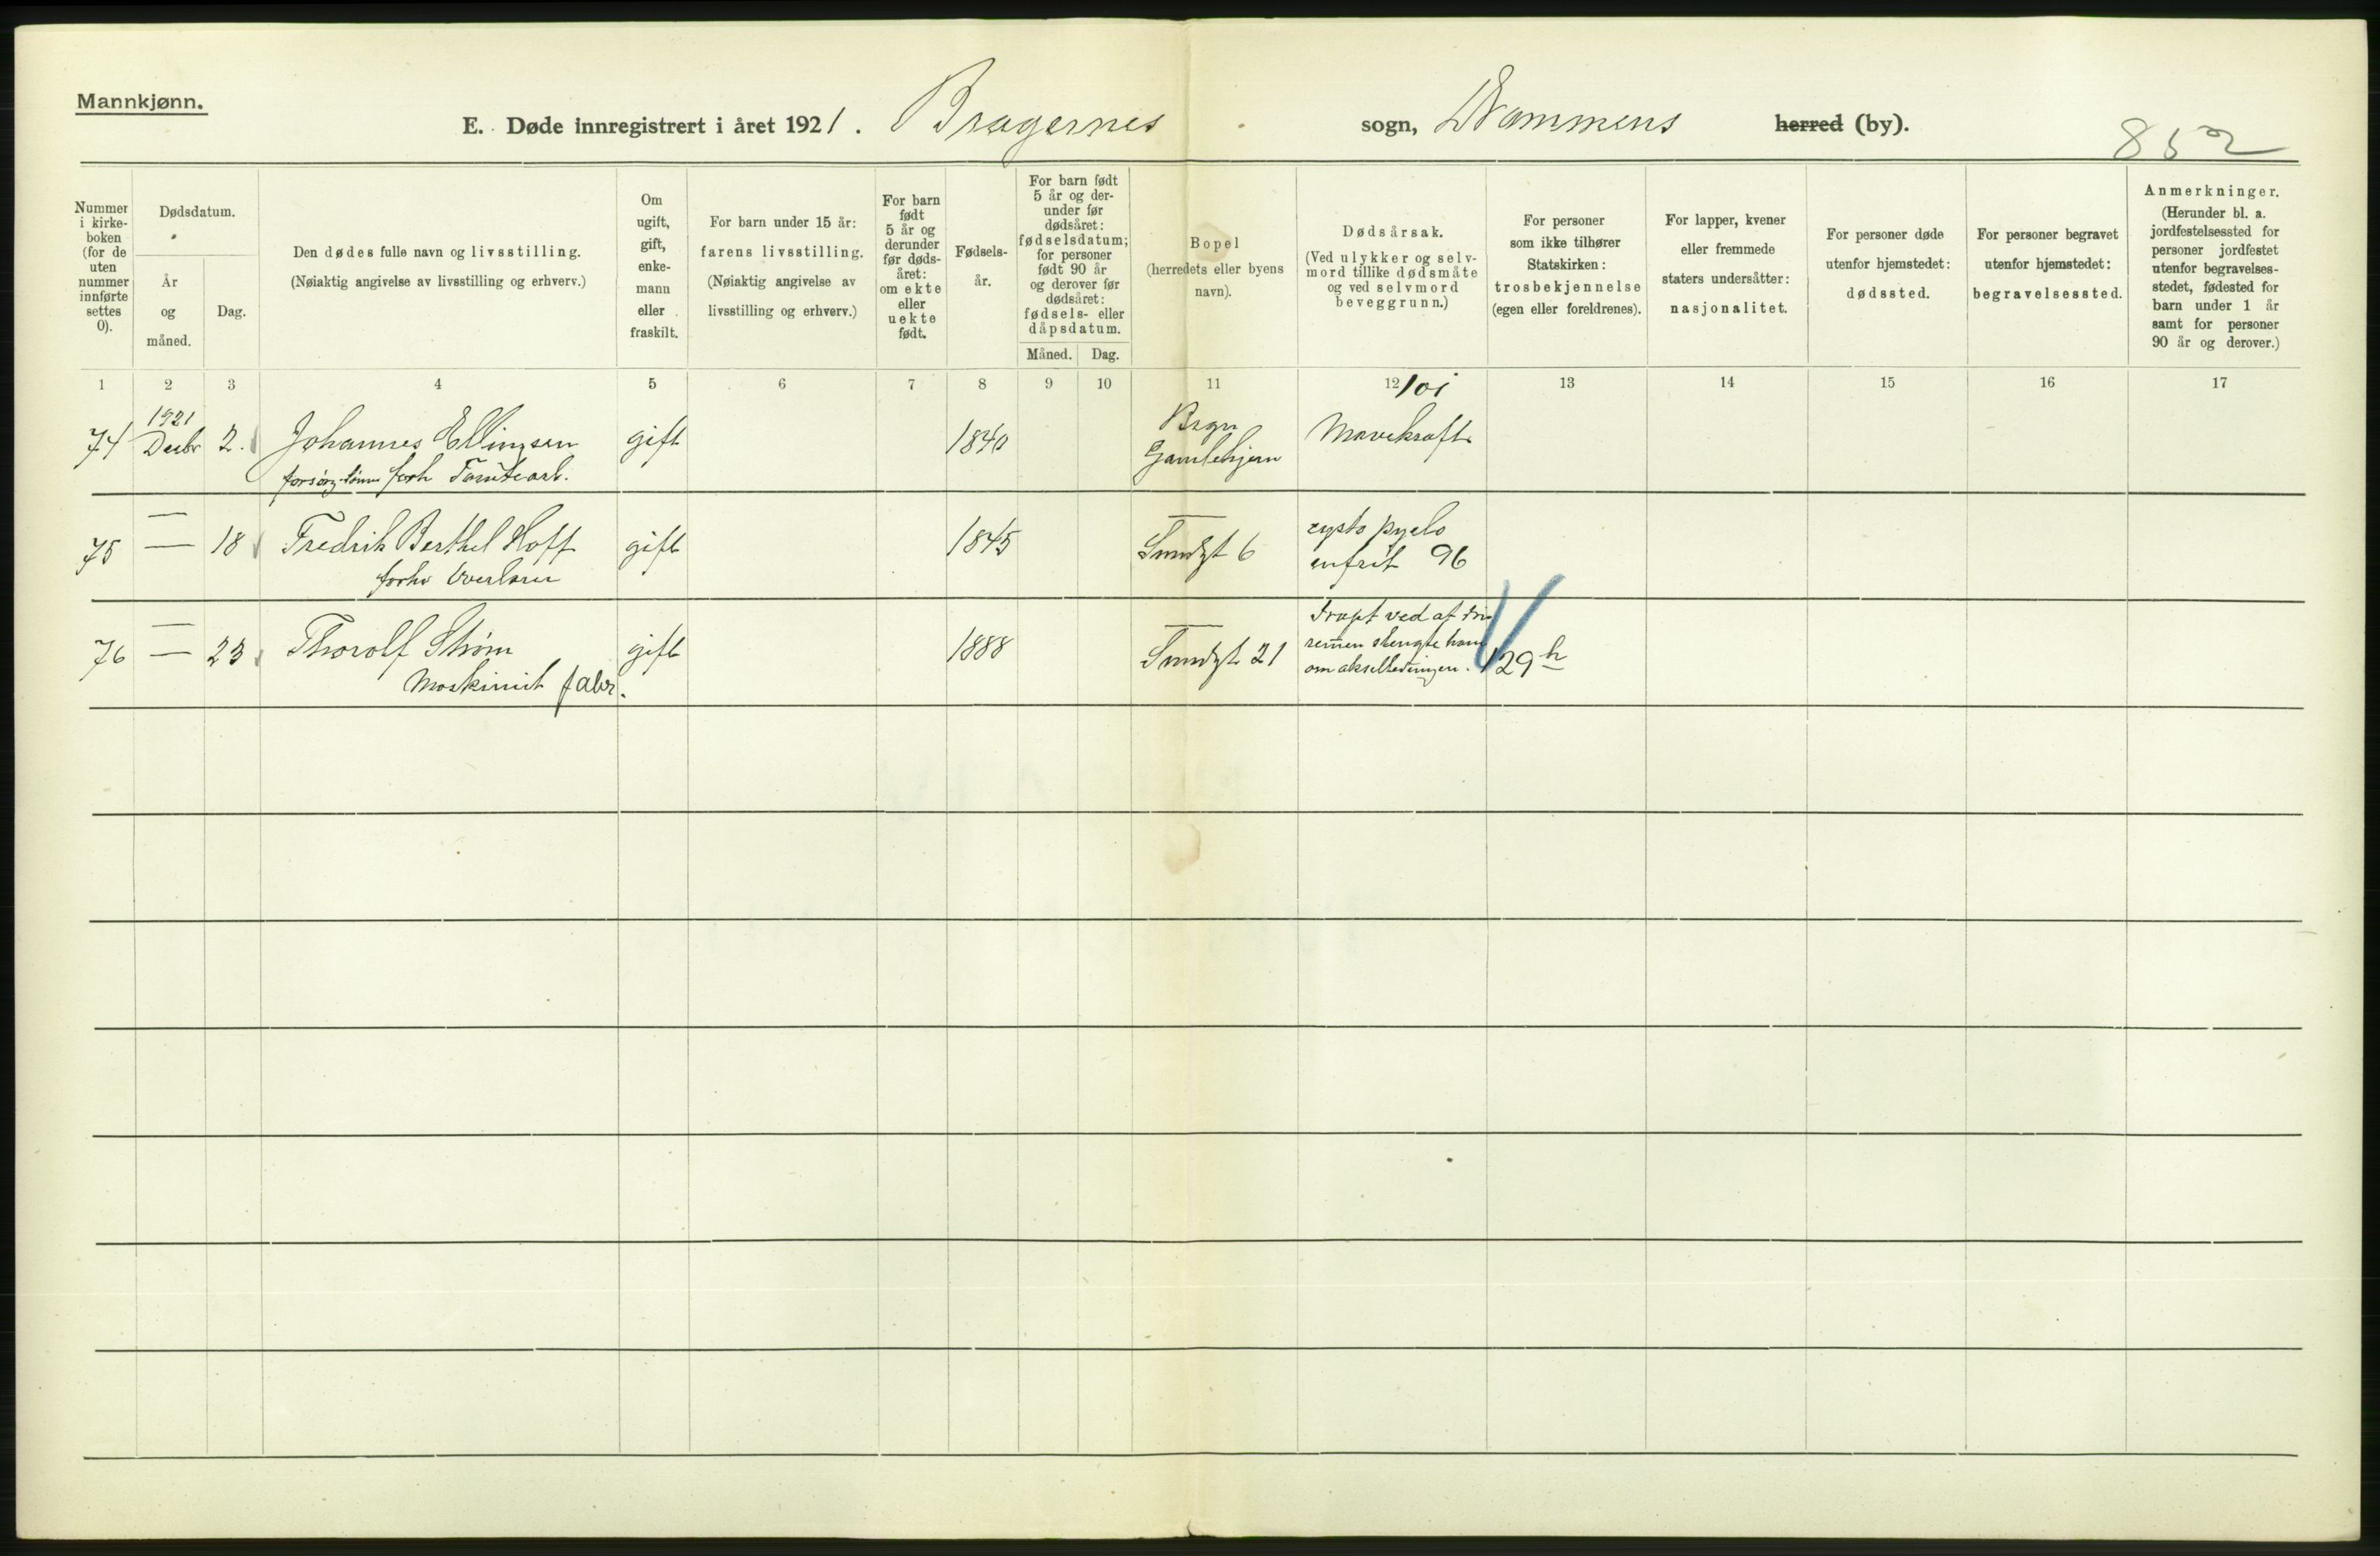 Mannkjønn.
E. Døde innregistrert i året 1921. Bragernes sogn, Drammens herred (by).
852
Nummer i kirke-boken (for de uten nummer innførte settes 0).
Dødsdatum.
År og måned.
Dag.
Den dødes fulle navn og livsstilling.
(Nøiaktig angivelse av livsstilling og erhverv.)
Om ugift, gift, enke-mann eller fraskilt.
For barn under 15 år:
farens livsstilling.
(Nøiaktig angivelse av livsstilling og erhverv.)
For barn født 5 år og derunder før døds-året: om ekte eller uekte født.
Fødsels-år.
For barn født 5 år og der-under før dødsåret: fødselsdatum; for personer født 90 år og derover før dødsåret: fødsels- eller dåpsdatum.
Måned. Dag.
Bopel
(herredets eller byens navn).
Dødsårsak.
(Ved ulykker og selv-mord tillike dødsmåte og ved selvmord beveggrunn.)
For personer som ikke tilhører Statskirken:
trosbekjennelse
(egen eller foreldrenes).
For lapper, kvener eller fremmede staters undersåtter:
nasjonalitet.
For personer døde utenfor hjemstedet:
dødssted.
For personer begravet utenfor hjemstedet:
begravelsessted.
Anmerkninger.
(Herunder bl. a. jordfestelsessted for personer jordfestet utenfor begravelses-stedet, fødested for barn under 1 år samt for personer 90 år og derover.)
1 2 3 4 5 6 7 8 9 10 11 12 13 14 15 16 17
101
1921
74 Decbr 2. Johannes Ellingsen gift 1840 Brgn Gamlehjem Mavekræft
forh Tomtearb.
75 — — 18 Fredrik Berthel Hoff gift 1845 — Smedgt 6 cysto pyelo
forhv Overlærer 96
76 — — 23 Thorolf Strøm gift 1888 — Smedgt 21 Dræpt ved at
Maskinist fabr. remen slengte ham
om akselledningen. 129 h